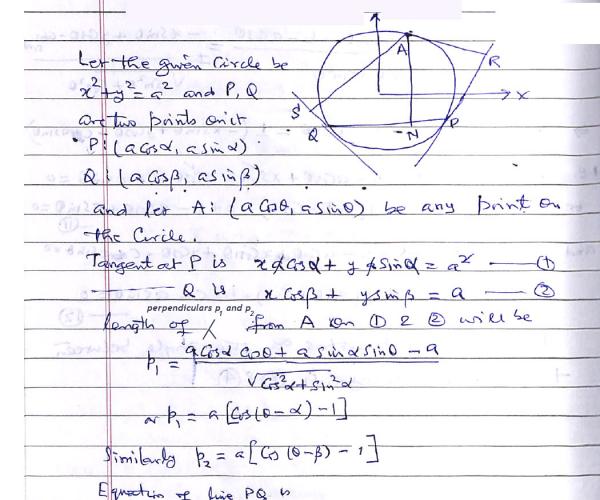 Let the given Circle be
x² + y² = a² and P, Q
are two points on it
P: (a cosα, a sinα)
Q: (a cosβ, a sinβ)
and let A: (a cosθ, a sinθ) be any point on
the Circle.
Tangent at P is x a cosα + y a sinα = a² —— ①
——— Q is x cosβ + y sinβ = a —— ②
perpendiculars p₁ and p₂
length of from A on ① & ② will be
p₁ = (a cosα cosθ + a sinα sinθ − a) / √(cos²α + sin²α)
or p₁ = a [cos(θ−α) − 1]
Similarly p₂ = a [cos(θ−β) − 1]
Equation of line PQ is
A
R
X
S
Q
N
P